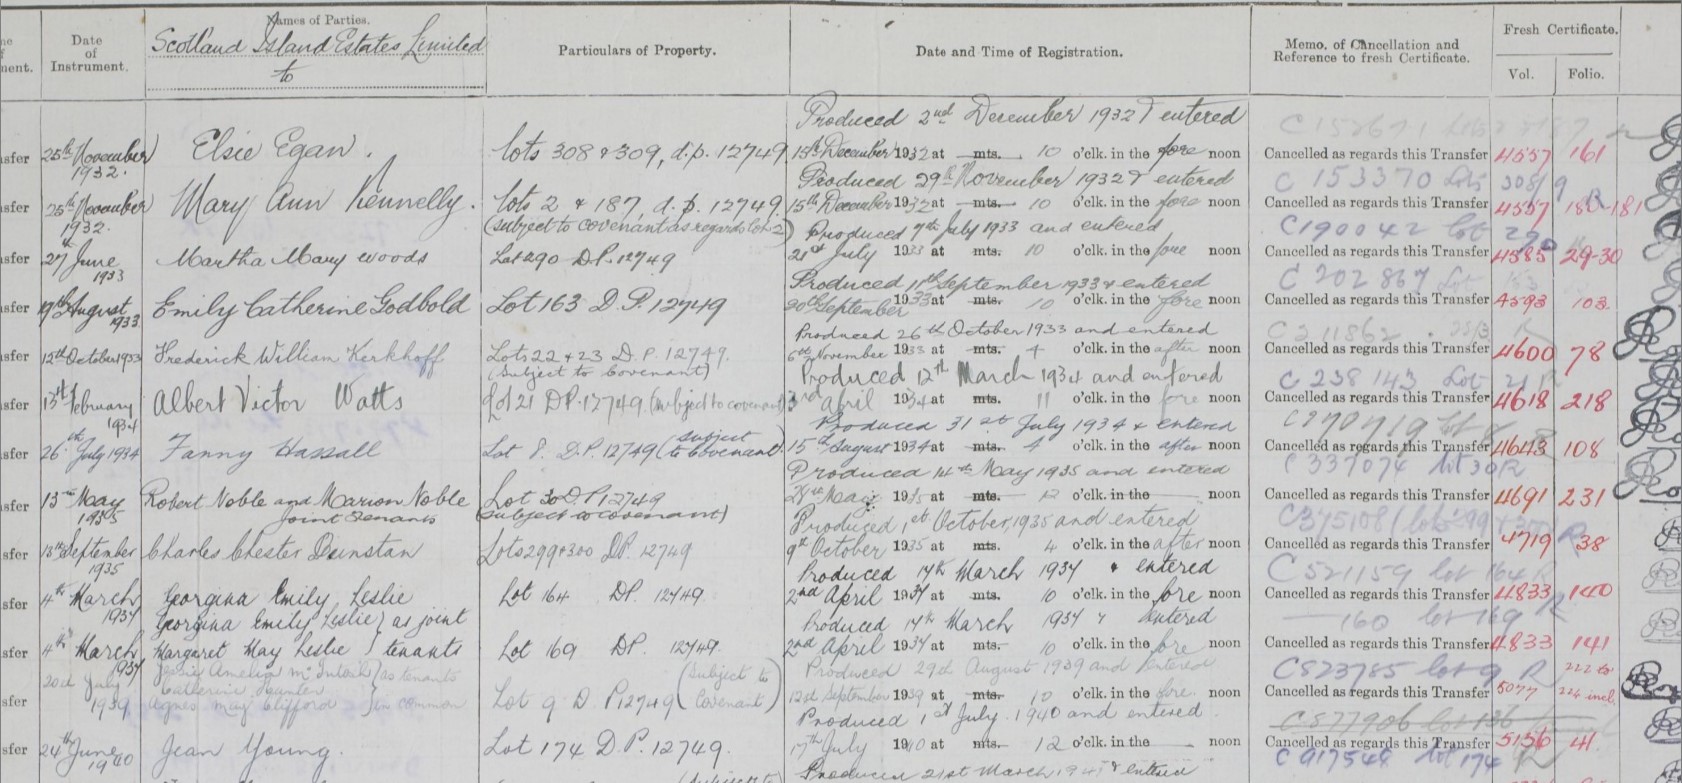 Date of Instrument.
Names of Parties.
Scotland Island Estates Limited
to
Particulars of Property.
Date and Time of Registration.
Memo. of Cancellation and Reference to fresh Certificate.
Fresh Certificate.
Vol. Folio.
Produced 2nd December 1932 & entered
sfer 25th November 1932. Elsie Egan. Lots 308 & 309, d.p. 12749 15th December 1932 at mts. 10 o'clk. in the fore noon Cancelled as regards this Transfer 4557 161
Produced 29th November 1932 & entered C 153370 Lots 308/9
sfer 25th November 1932. Mary Ann Kennelly. Lots 2 & 187, d.p. 12749. 15th December 1932 at mts. 10 o'clk. in the fore noon Cancelled as regards this Transfer 4557 180-181
(subject to covenant as regards lot 2) Produced 7th July 1933 and entered C190042 lot 290
sfer 27 June 1933 Martha Mary Woods Lot 290 D.P. 12749 21st July 1933 at mts. 10 o'clk. in the fore noon Cancelled as regards this Transfer 4585 29-30
Produced 11th September 1933 & entered C 202867 Lot 163
sfer 19th August 1933 Emily Catherine Godbold Lot 163 D.P. 12749 20th September 1933 at mts. 10 o'clk. in the fore noon Cancelled as regards this Transfer 4593 103.
Produced 26th October 1933 and entered C 211862
sfer 12th October 1933 Frederick William Kerkhoff Lots 22 & 23 D.P. 12749. 6th November 1933 at mts. 4 o'clk. in the after noon Cancelled as regards this Transfer 4600 78
(Subject to Covenant) Produced 12th March 1934 and entered C 238143 Lot 21 R
sfer 13th February 1934 Albert Victor Watts Lot 21 D.P. 12749 (subject to covenant) 3rd April 1934 at mts. 11 o'clk. in the fore noon Cancelled as regards this Transfer 4618 218
Produced 31st July 1934 & entered C270719 Lot 8
sfer 26th July 1934 Fanny Hassall Lot 8. D.P. 12749 (subject to Covenant). 15th August 1934 at mts. 4 o'clk. in the after noon Cancelled as regards this Transfer 4643 108
Produced 14th May 1935 and entered C 337074 Lot 30 R
sfer 13th May 1935 Robert Noble and Marion Noble Lot 30 D.P. 12749 May 1935 at mts. 12 o'clk. in the noon Cancelled as regards this Transfer 4691 231
Joint Tenants (Subject to covenant) Produced 1st October, 1935 and entered C375108 (lots 299 & 300) R
sfer 13th September 1935 Charles Chester Dunstan Lots 299 & 300 D.P. 12749 9th October 1935 at mts. 4 o'clk. in the after noon Cancelled as regards this Transfer 4719 38
Produced 17th March 1937 & entered C521159 lot 164 R
sfer 4th March 1937 Georgina Emily Leslie Lot 164 D.P. 12749. 2nd April 1937 at mts. 10 o'clk. in the fore noon Cancelled as regards this Transfer 4833 140
Georgina Emily Leslie } as joint Produced 17th March 1937 & entered — 160 lot 169 R
sfer 4th March 1937 Margaret May Leslie } tenants Lot 169 D.P. 12749. 2nd April 1937 at mts. 10 o'clk. in the fore noon Cancelled as regards this Transfer 4833 141
Jessie Amelia McIntosh } as tenants (Subject to Produced 29th August 1939 and entered C523785 lot 9 R 222 to
sfer 20th July 1939 Catherine Agnes May Clifford } in common Lot 9 D.P. 12749 Covenant) September 1939 at mts. 10 o'clk. in the fore noon Cancelled as regards this Transfer 5077 224 incl.
Produced 1st July 1940 and entered C577906 lot 136
sfer 24th June 1940 Jean Young. Lot 174 D.P. 12749. 17th July 1940 at mts. 12 o'clk. in the noon Cancelled as regards this Transfer 5156 41.
Produced 21st March & entered C 917548 Lot 174 R